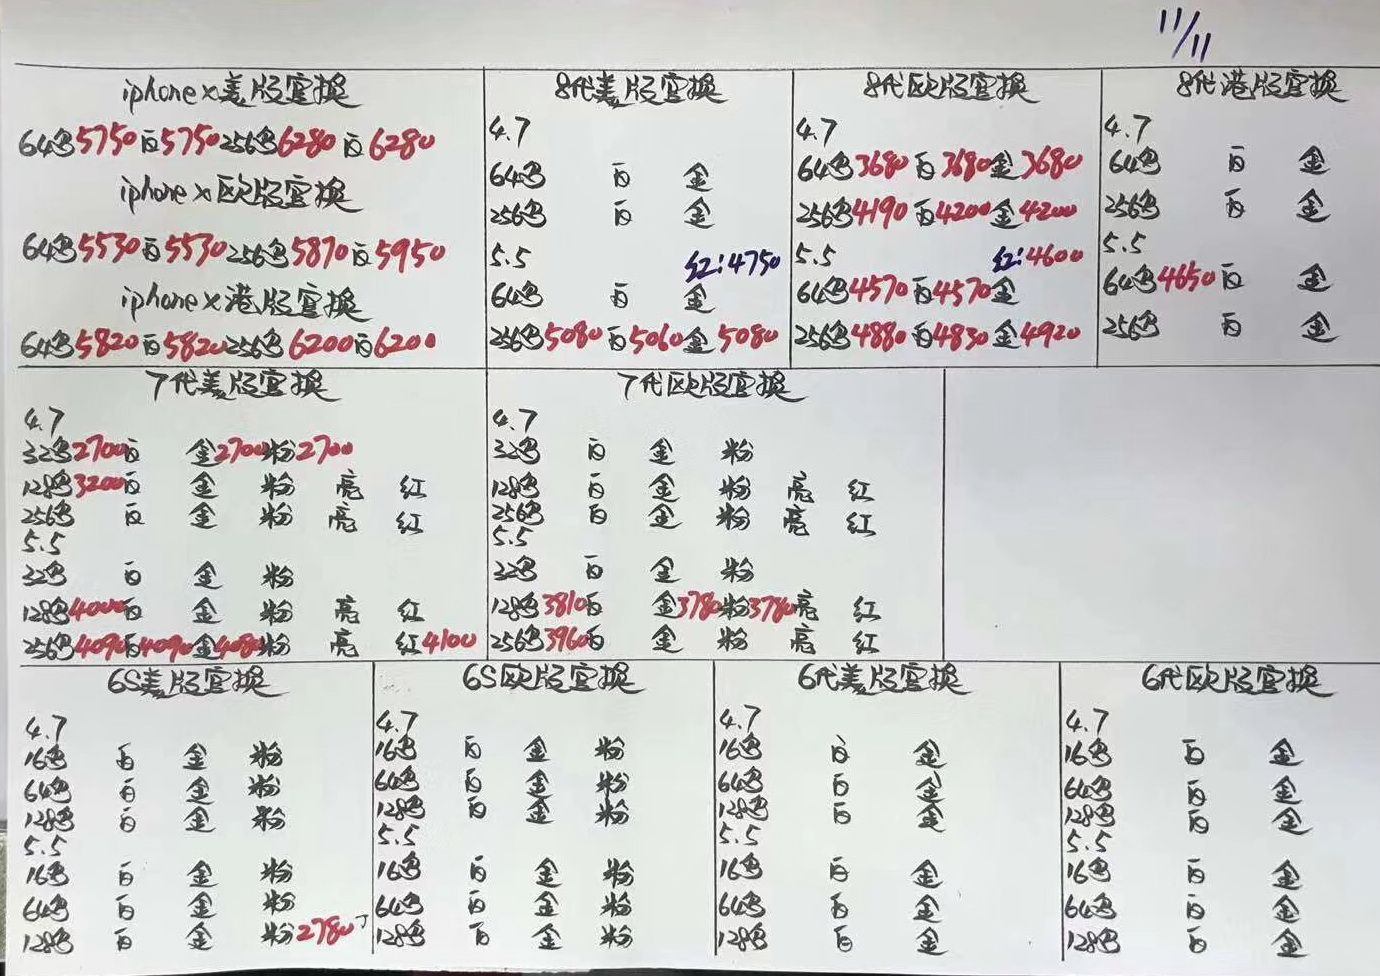 11/11
iphone x美版官换
64黑5750白5750 256黑6280白6280
iphone x欧版官换
64黑5530白5530 256黑5870白5950
iphone x港版官换
64黑5820白5820 256黑6200白6200
8代美版官换
4.7
64黑 白 金
256黑 白 金
5.5 红:4750
64黑 白 金
256黑5080白5060金5080
8代欧版官换
4.7
64黑3680白3680金3680
256黑4190白4200金4200
5.5 红:4600
64黑4570白4570金
256黑4880白4830金4920
8代港版官换
4.7
64黑 白 金
256黑 白 金
5.5
64黑4650白 金
256黑 白 金
7代美版官换
4.7
32黑2700白 金2700粉2700
128黑3200白 金 粉 亮 红
256黑 白 金 粉 亮 红
5.5
32黑 白 金 粉
128黑4000白 金 粉 亮 红
256黑4090白4090金4080粉 亮 红4100
7代欧版官换
4.7
32黑 白 金 粉
128黑 白 金 粉 亮 红
256黑 白 金 粉 亮 红
5.5
32黑 白 金 粉
128黑3810白 金3780粉3780亮 红
256黑3960白 金 粉 亮 红
6S美版官换
4.7
16黑 白 金 粉
64黑 白 金 粉
128黑 白 金 粉
5.5
16黑 白 金 粉
64黑 白 金 粉
128黑 白 金 粉2780
6S欧版官换
4.7
16黑 白 金 粉
64黑 白 金 粉
128黑 白 金 粉
5.5
16黑 白 金 粉
64黑 白 金 粉
128黑 白 金 粉
6代美版官换
4.7
16黑 白 金
64黑 白 金
128黑 白 金
5.5
16黑 白 金
64黑 白 金
128黑 白 金
6代欧版官换
4.7
16黑 白 金
64黑 白 金
128黑 白 金
5.5
16黑 白 金
64黑 白 金
128黑 白 金